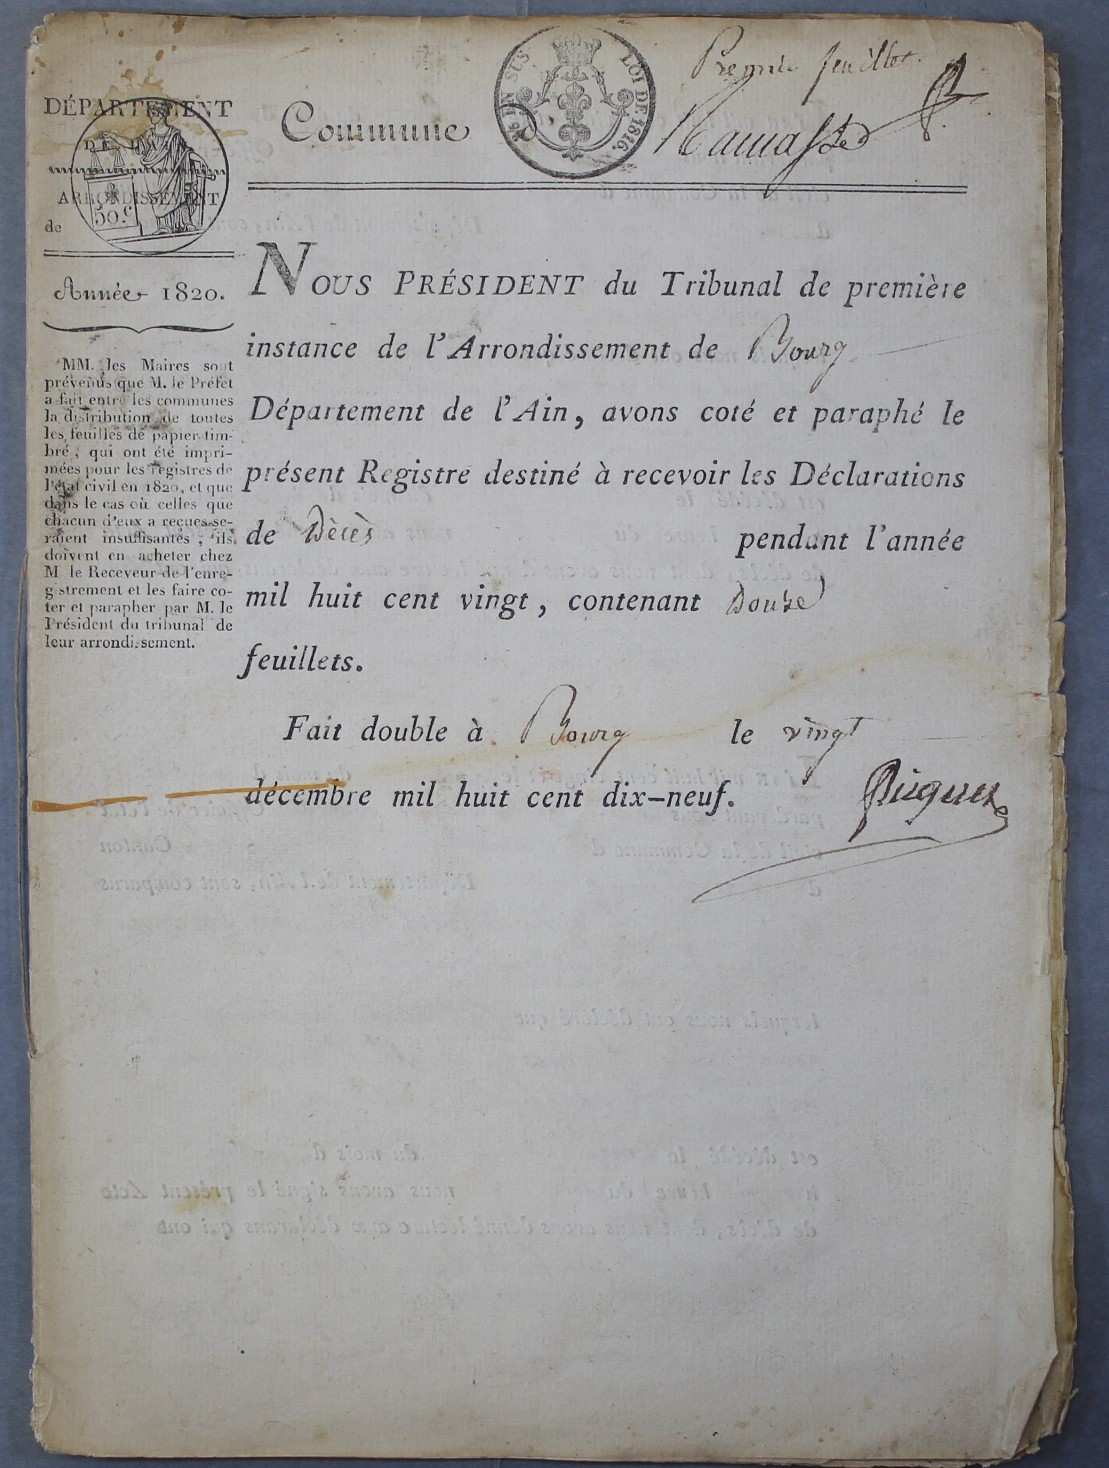 Premier feuillet.
DÉPARTEMENT
DE
ARRONDISSEMENT
50.c
de
Commune
EN SUS
LOI DE 1816.
Ramasse
Année 1820.
MM. les Maires sont
prévenus que M. le Préfet
a fait entre les communes
la distribution de toutes
les feuilles de papier tim-
bré, qui ont été impri-
mées pour les registres de
l'état civil en 1820, et que
dans le cas où celles que
chacun d'eux a reçues se-
raient insuffisantes, ils
doivent en acheter chez
M le Receveur de l'enre-
gistrement et les faire co-
ter et parapher par M. le
Président du tribunal de
leur arrondissement.
NOUS PRÉSIDENT du Tribunal de première
instance de l'Arrondissement de Bourg
Département de l'Ain, avons coté et paraphé le
présent Registre destiné à recevoir les Déclarations
de Décès pendant l'année
mil huit cent vingt, contenant Douze
feuillets.
Fait double à Bourg le vingt
décembre mil huit cent dix-neuf.